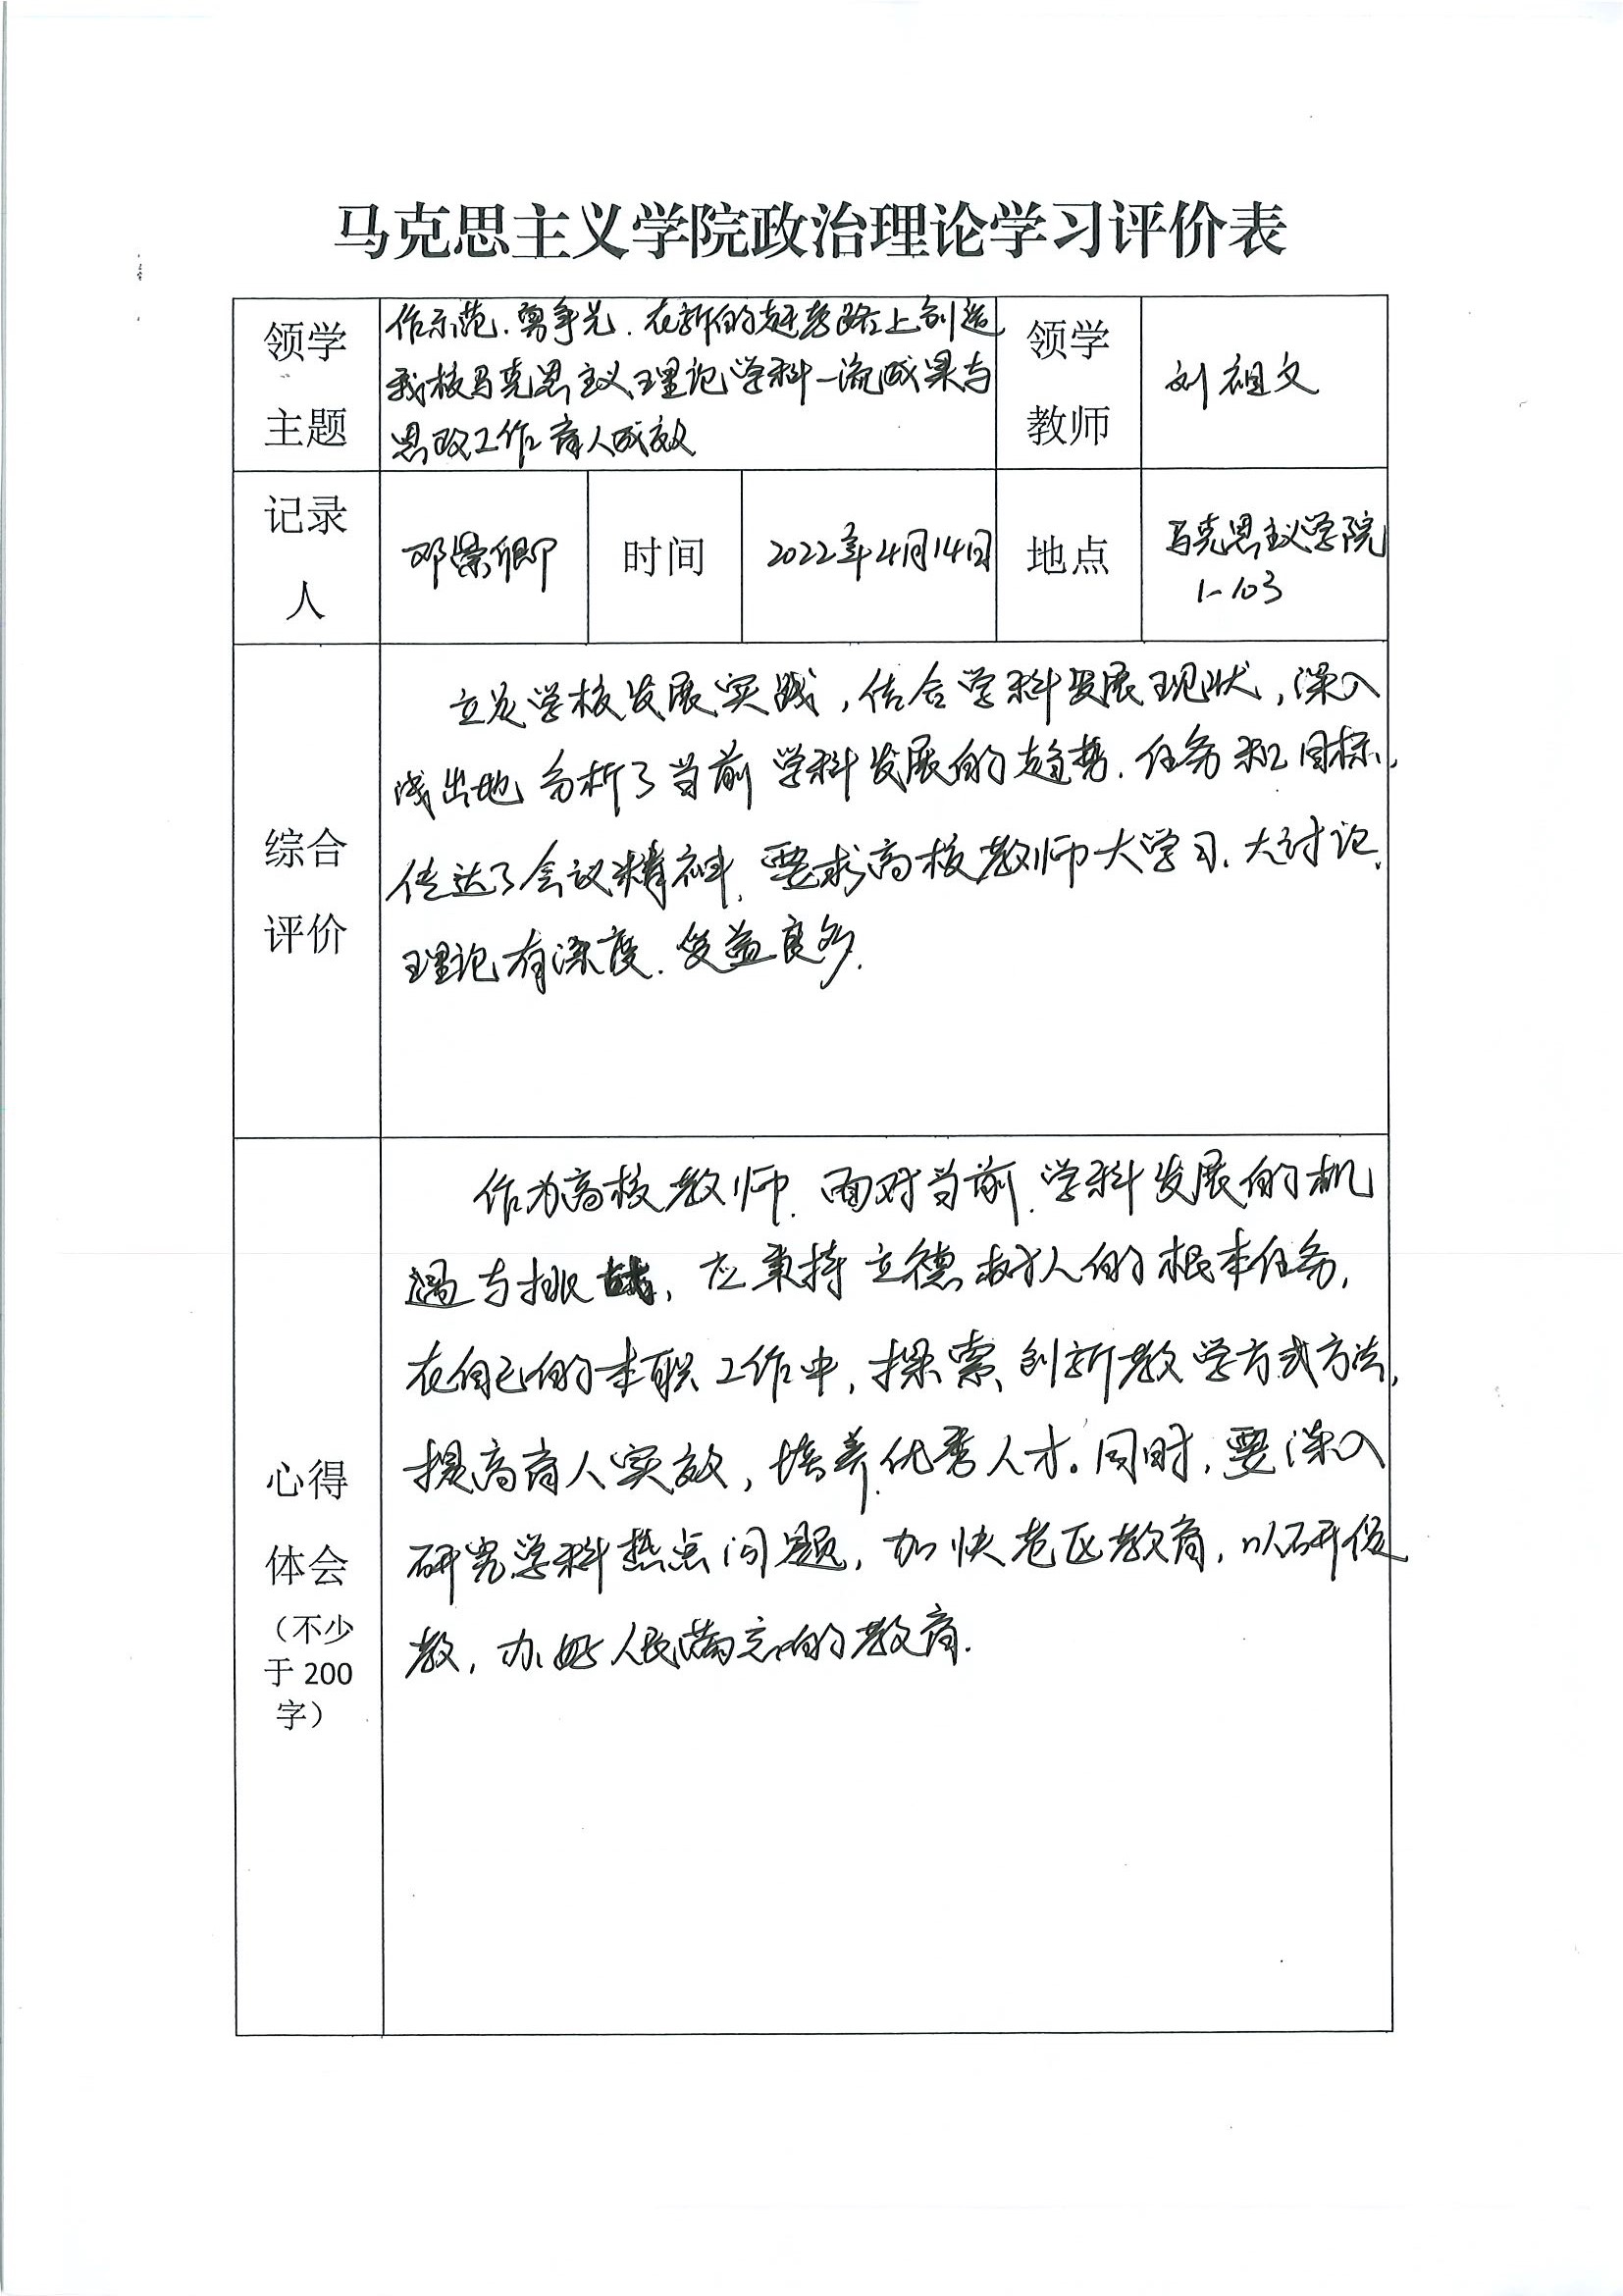 马克思主义学院政治理论学习评价表
领学
主题
作示范、勇争先、在新的赶考路上创造
我校马克思主义理论学科一流成果与
思政工作育人成效
领学
教师
刘祖文
记录
人
邓荣卿
时间
2022年4月14日
地点
马克思主义学院
1-103
综合
评价
立足学校发展实践，结合学科发展现状，深入
浅出地分析了当前学科发展的趋势、任务和目标，
传达了会议精神、要求高校教师大学习、大讨论、
理论有深度、受益良多.
心得
体会
（不少
于 200
字）
作为高校教师、面对当前、学科发展的机
遇与挑战，应秉持立德树人的根本任务，
在自己的本职工作中，探索、创新教学方式方法，
提高育人实效，培养优秀人才。同时，要深入
研究学科热点问题，加快老区教育，以研促
教，办好人民满意的教育.